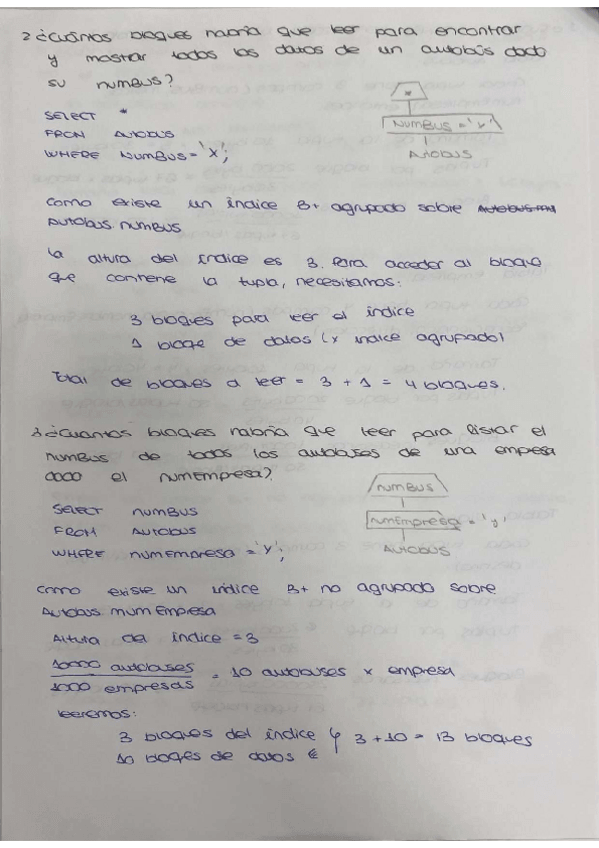 2 ¿Cuántos bloques habría que leer para encontrar
y mostrar todos los datos de un autobús dado
su numBus?
*
SELECT *
FROM Autobus
WHERE NumBus = 'x';
NumBus = 'x'
Autobus
Como existe un índice B+ agrupado sobre
Autobus.numBus
la altura del índice es 3. Para acceder al bloque
que contiene la tupla, necesitamos:
3 bloques para leer el índice
1 bloqe de datos (x indice agrupado)
Total de bloques a leer = 3 + 1 = 4 bloques.
3 ¿Cuantos bloques habría que leer para listar el
numBus de todos los autobuses de una empresa
dado el numEmpresa?
numBus
SELECT numBus
FROM Autobus
WHERE numEmpresa = 'y';
numEmpresa = 'y'
Autobus
Como existe un índice B+ no agrupado sobre
Autobus numEmpresa
Altura del índice = 3
10000 autobuses
1000 empresas
= 10 autobuses x empresa
leeremos:
3 bloques del índice
10 bloqes de datos
3 + 10 = 13 bloques